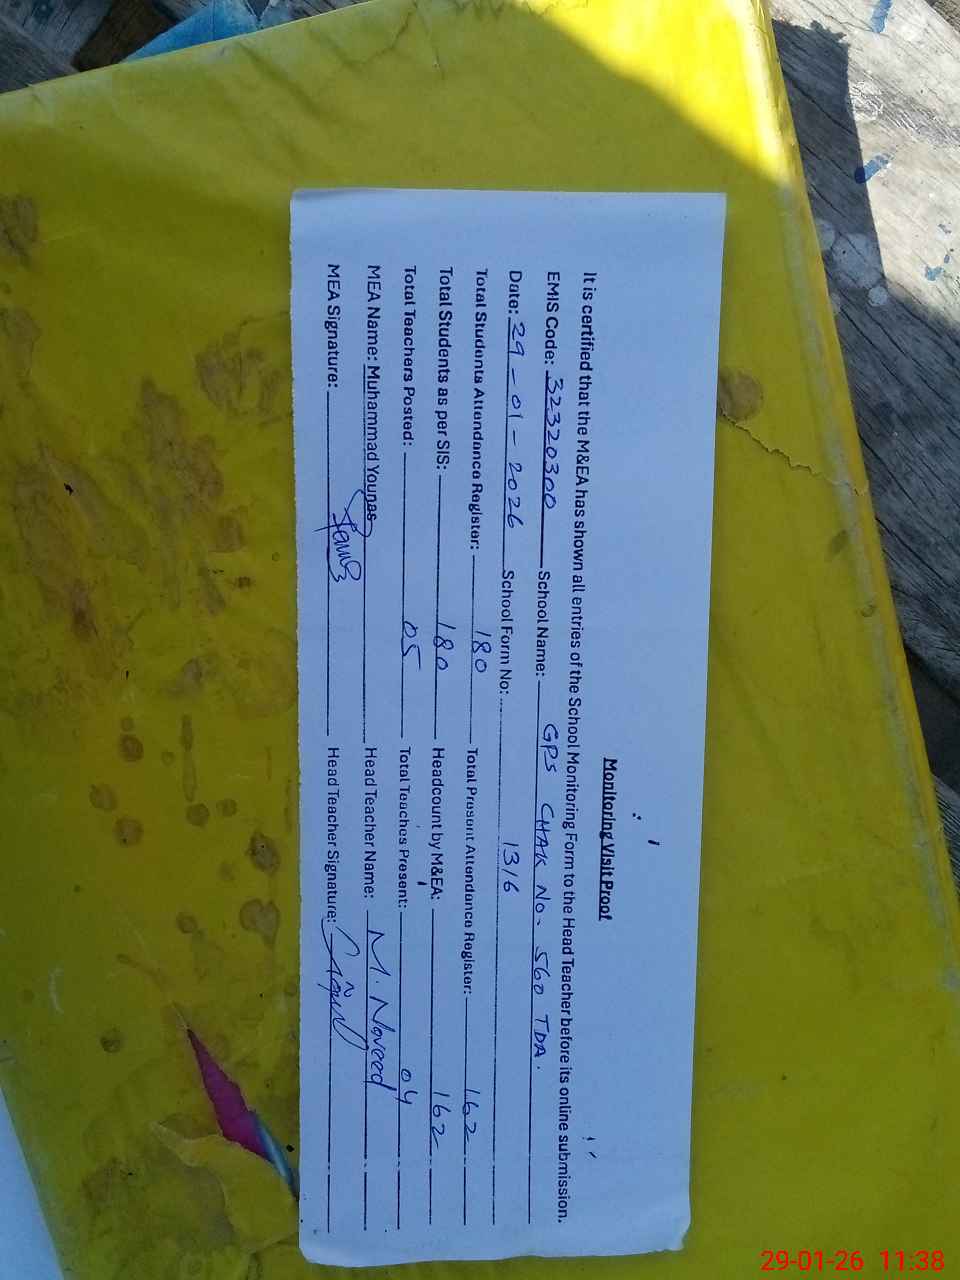 Monitoring Visit Proof
It is certified that the M&EA has shown all entries of the School Monitoring Form to the Head Teacher before its online submission.
EMIS Code: 32320300 School Name: GPS CHAK NO. 560 TDA.
Date: 29-01-2026 School Form No: 1316
Total Students Attendance Register: 180 Total Present Attendance Register: 162
Total Students as per SIS: 180 Headcount by M&EA: 162
Total Teachers Posted: 05 Total Teaches Present: 04
MEA Name: Muhammad Younas Head Teacher Name: M. Naveed
MEA Signature: Head Teacher Signature:
29-01-26 11:38